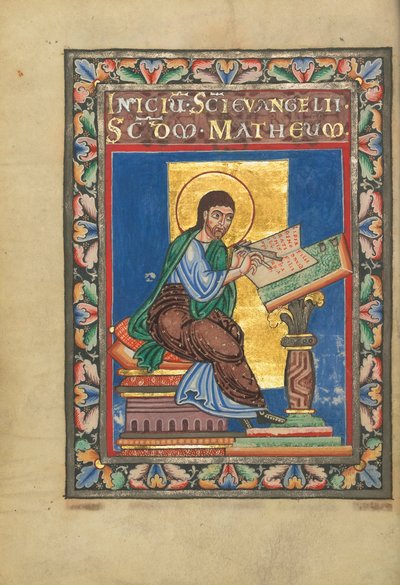 INICIŪ · SCĪ EVANGELII ·
SC̄DM̄ · MATHEUM